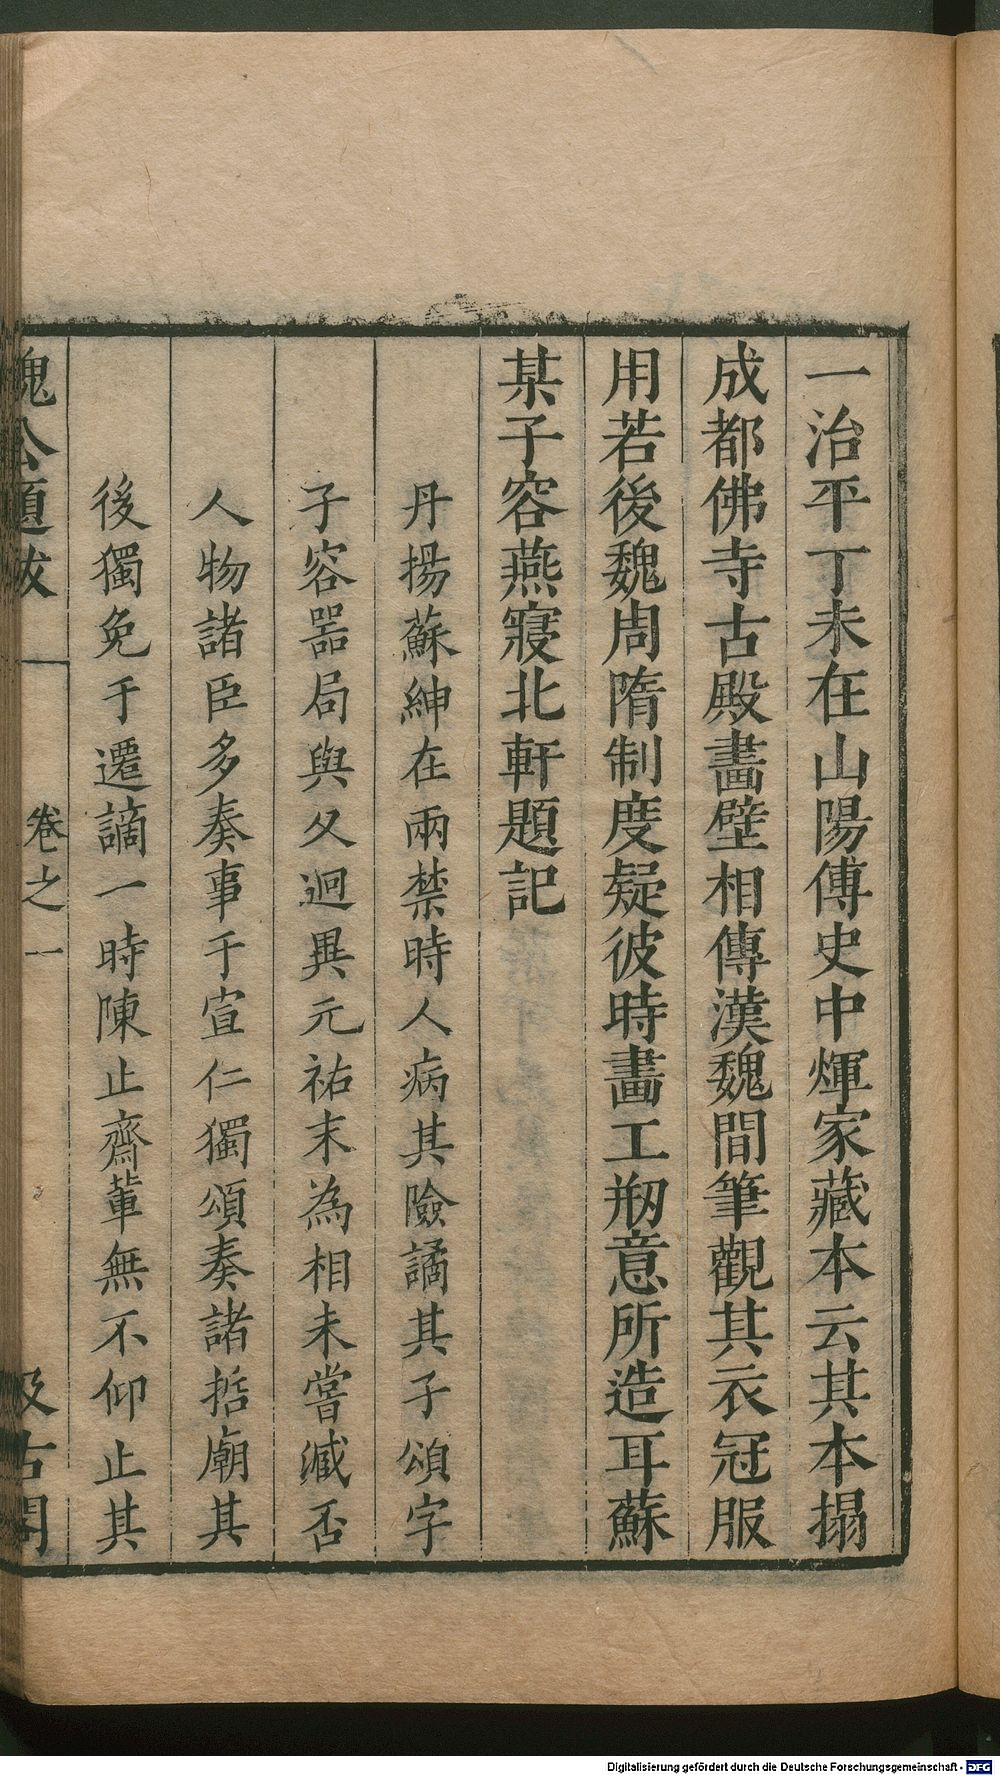 一治平丁未在山陽傅史中煇家藏本云其本搨
成都佛寺古殿畫壁相傳漢魏間筆觀其衣冠服
用若後魏周隋制度疑彼時畫工刱意所造耳蘇
某子容燕寢北軒題記
丹揚蘇紳在兩禁時人病其險譎其子頌字
子容器局與父迥異元祐末為相未嘗減否
人物諸臣多奏事于宣仁獨頌奏諸哲廟其
後獨免于遷謫一時陳止齋輩無不仰止其
魏公題跋
卷之一
汲古閣
Digitalisierung gefördert durch die Deutsche Forschungsgemeinschaft - DFG